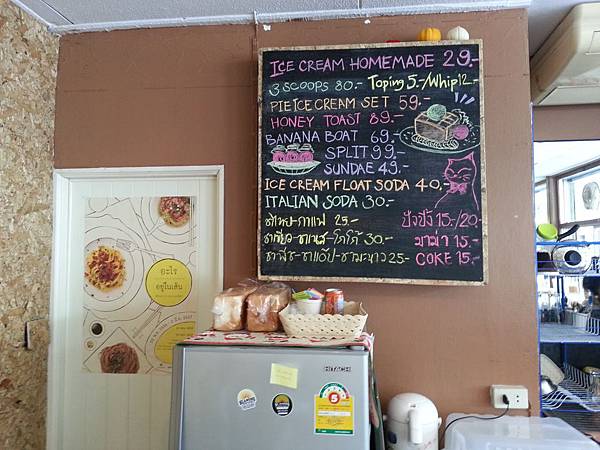 ICE CREAM HOMEMADE 29.-
3 SCOOPS 80.- Toping 5.-/Whip 12.-
PIE ICE CREAM SET 59.-
HONEY TOAST 89.-
BANANA BOAT 69.-
SPLIT 99.-
SUNDAE 49.-
ICE CREAM FLOAT SODA 40.-
ITALIAN SODA 30.-
ชาไทย-กาแฟ 25.-
ปังปิ้ง 15.-/20.-
ชาเขียว-ชาเนส-โกโก้ 30.-
มาม่า 15.-
ชาพีช-ชาแอ๊ป-ชามะนาว 25.-
COKE 15.-
อะไร
อยู่ในเส้น
HITACHI
5